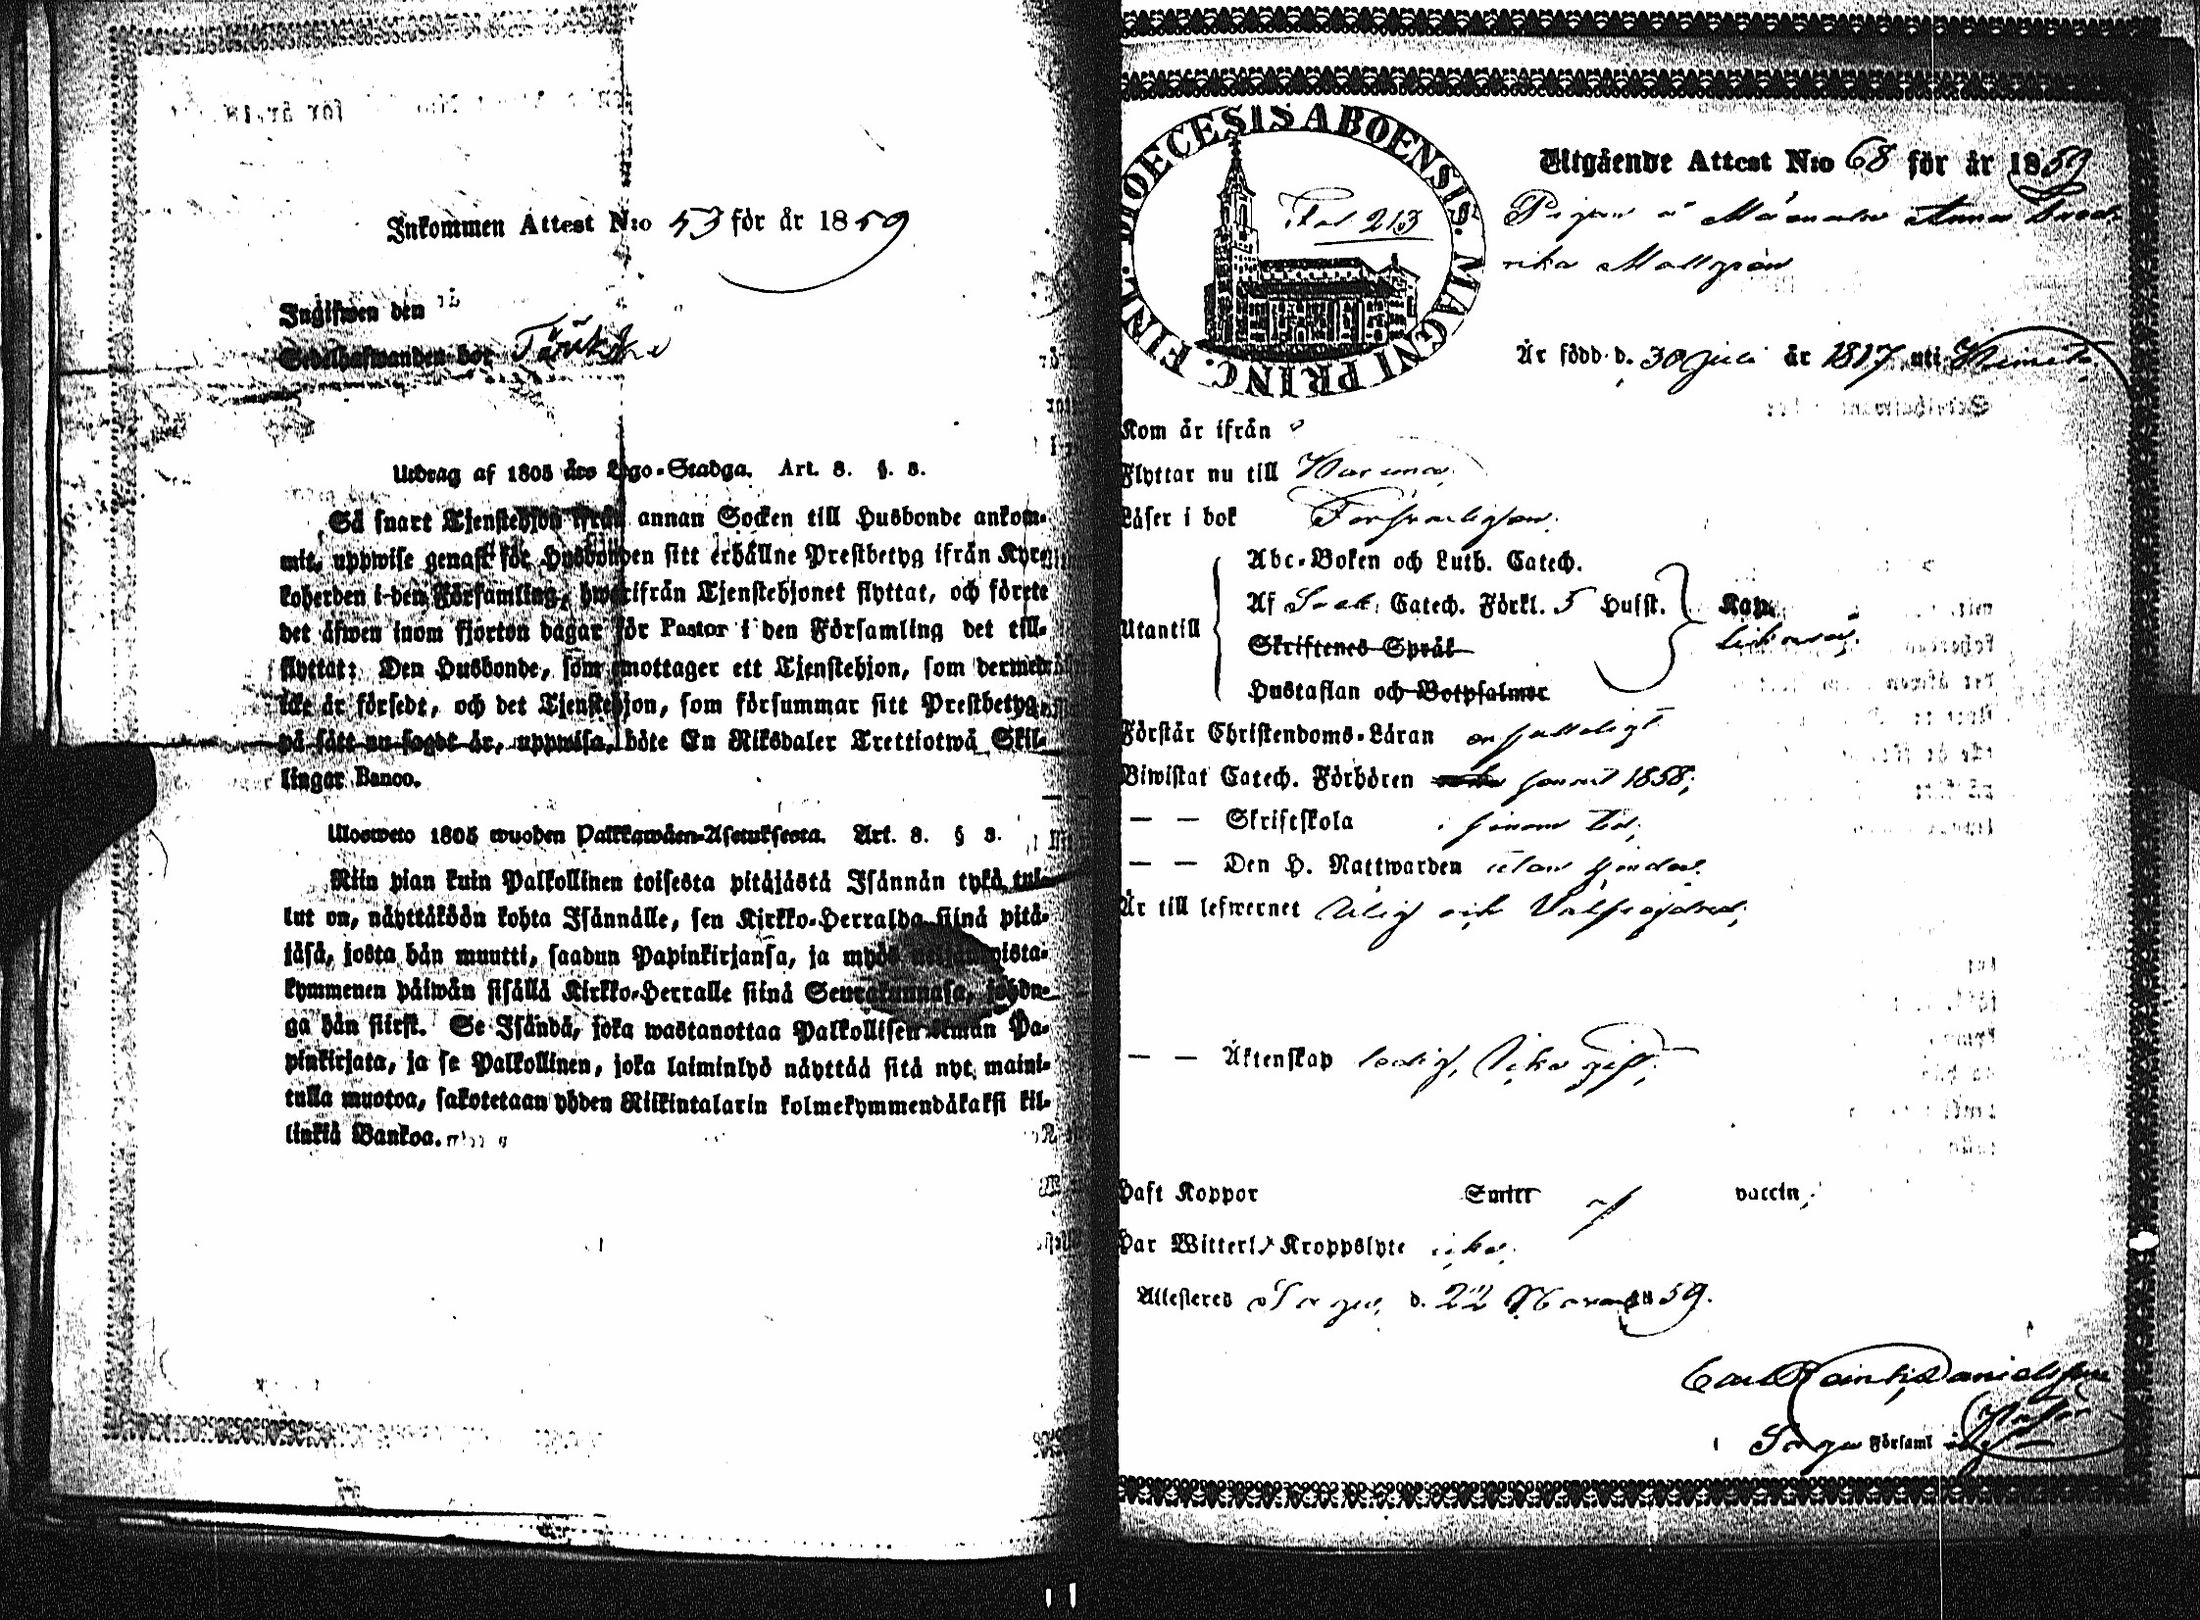 Inkommen Attest N:o 53 för år 1859
Ingifwen den
Sedelhafwanden bor
Utdrag af 1805 års Lego-Stadga. Art. 8. §. 3.
Så snart Tjenstehjon ifrån annan Socken till Husbonde ankom-
mit, uppwise genast för Husbonden sitt erhållne Prestbetyg ifrån Kyrc-
koherden i den Församling, hwarifrån Tjenstehjonet flyttat, och förete
det äfwen inom fjorton dagar för Pastor i den Församling det till-
flyttat; Den Husbonde, som emottager ett Tjenstehjon, som dermed
icke är försedt, och det Tjenstehjon, som försummar sitt Prestbetyg,
på sätt nu sagdt är, uppwisa, böte En Riksdaler Trettiotwå Skil-
lingar Banco.
Ulosweto 1805 wuoden Palkkawäen-Asetuksesta. Art. 8. § 3.
Niin pian kuin Palkollinen toisesta pitäjästä Isännän tykö tul-
lut on, näyttäköön kohta Isännälle, sen Kirkko-Herralda siinä pitä-
jäsä, josta hän muutti, saadun Papinkirjansa, ja myös neljäntoista-
kymmenen päiwän sisällä Kirkko-Herralle siinä Seurakunnasa, johdn-
ga hän siirst. Se Isändä, joka wastanottaa Palkollisen ilman Pa-
pinkirjata, ja se Palkollinen, joka laiminlyö näyttää sitä nyt maini-
tulla muotoa, sakotetaan yhden Riikintalarin kolmekymmendäkaksi kil-
linkiä Bankoa.
DIOECESIS ABOENSIS. MAGNI PRINC. FINL.
Fol 213
Utgående Attest N:o 68 för år 1859
Pigan Anna Fred-
rika Mallgrén
Är född d. 30 Juli år 1817 uti Kimito
Kom år ifrån
Flyttar nu till
Läser i bok Försvarligen.
Utantill
Abc-Boken och Luth. Catech.
Af Sveb. Catech. Förkl. 5 Hufst.
Skriftenes Språk
Hustaflan och Botpsalmer
Förstår Christendoms-Läran
Biwistat Catech. Förhören 1858;
— — Skriftskola i sinom tid;
— — Den H. Nattwarden utan hinder.
Är till lefwernet ärlig och välfrejdad;
— — Äktenskap ledig, icke gift;
Haft Koppor Smitt vaccin;
Har Witterl. Kroppslyte icke.
Attesteres d. 22 Novemb. 1859.
Carl Danielsson
Församl